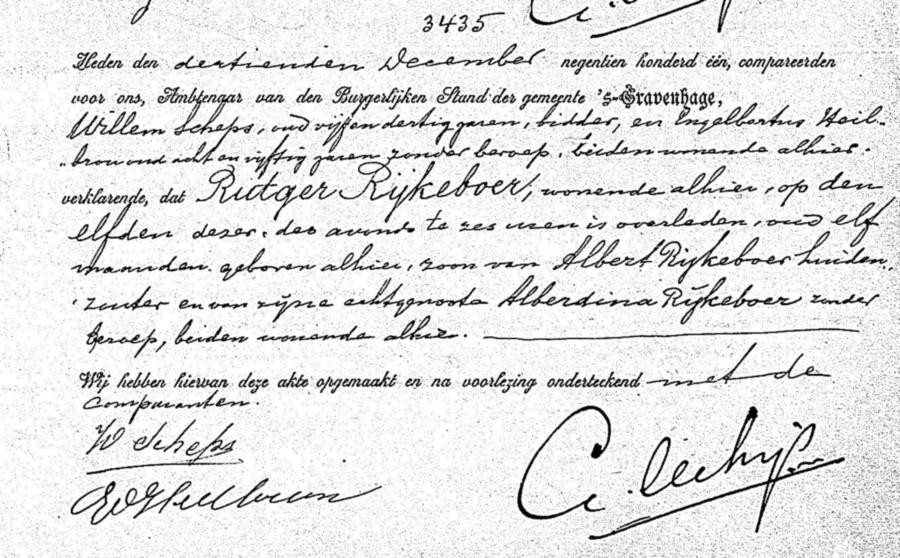 3435
Heden den dertienden December negentien honderd één, compareerden
voor ons, Ambtenaar van den Burgerlijken Stand der gemeente 's-Gravenhage,
Willem Scheps, oud vijf en dertig jaren, bidder, en Engelbertus Heil-
brou oud acht en vijftig jaren zonder beroep, beiden wonende alhier.
verklarende, dat Rutger Rijkeboer, wonende alhier, op den
elfden dezer, des avonds te zes uren is overleden, oud elf
maanden, geboren alhier, zoon van Albert Rijkeboer huiden
zouter en van zijne echtgenoote Alberdina Rijkeboer zonder
beroep, beiden wonende alhier.
Wij hebben hiervan deze akte opgemaakt en na voorlezing onderteekend met de
Comparanten.
W Scheps